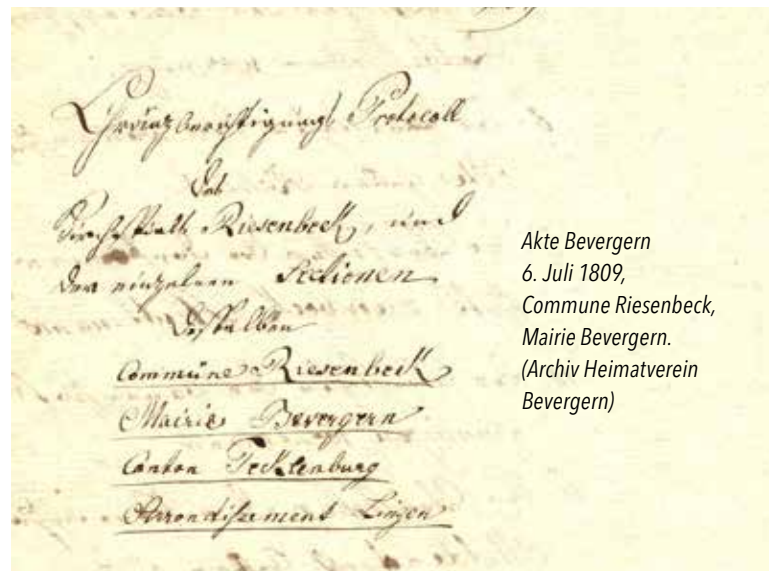 Gränzberichtigungs Protocoll
des
Kirchspiels Riesenbeck, und
der einzelnen Sectionen
desselben
Commüne Riesenbeck
Mairie Bevergern
Canton Tecklenburg
Arrondissement Lingen
Akte Bevergern
6. Juli 1809,
Commune Riesenbeck,
Mairie Bevergern.
(Archiv Heimatverein
Bevergern)